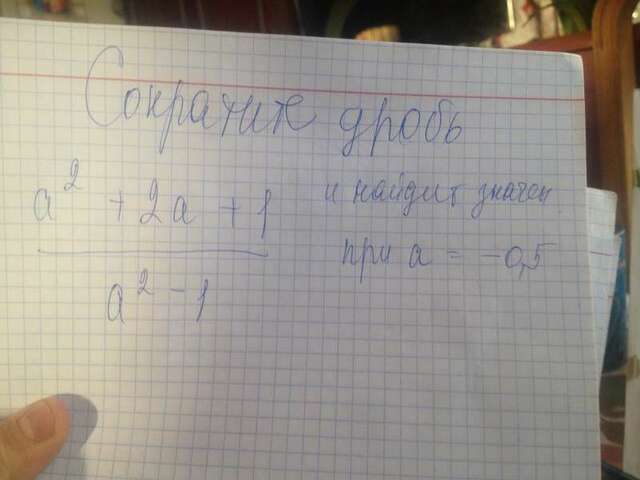 Сократите дробь
a² + 2a + 1
a² - 1
и найдите значен.
при a = -0,5